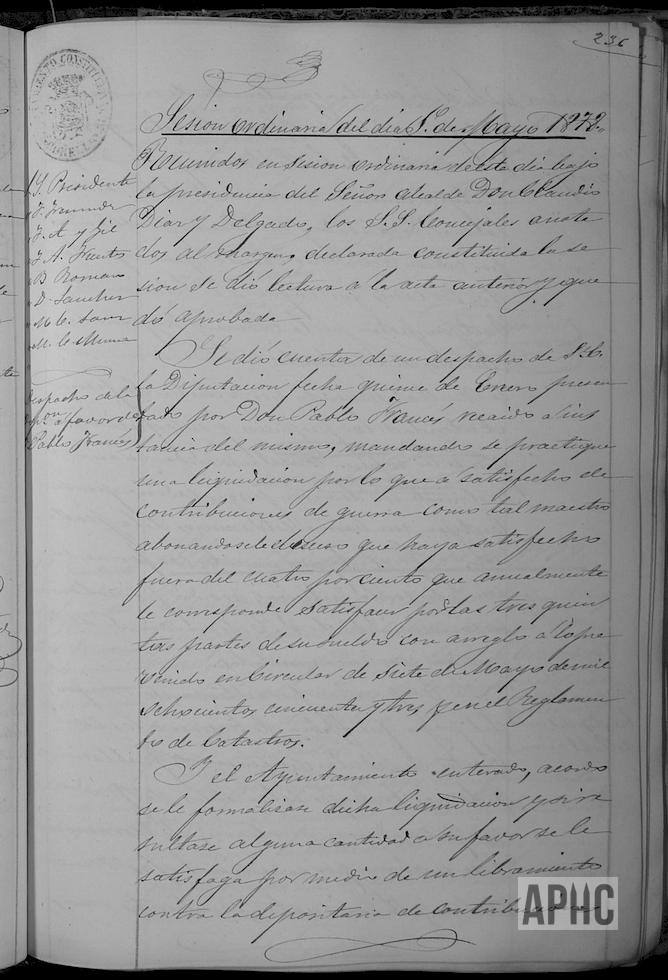 236
AYUNTAMIENTO CONSTITUCIONAL
Sesion ordinaria del dia 1º de Mayo 1872.
S. Presidente
J. A. y Gil
J. A. Frauto
B Roman
D. Sanchez
M. C.
M. C.
Despacho de la
Dipon a favor de
Pablo Francés
Reunidos en sesion ordinaria de este dia bajo
la presidencia del Señor Alcalde Don Claudio
Diaz y Delgado, los S.S. Concejales anota
dos al margen, declarada constituida la se
sion se dió lectura á la acta anterior y que
dó aprobada
Se dió cuenta de un despacho de S. E.
la Diputacion fecha quince de Enero presen
tado por Don Pablo Francés recaido a ins
tancia del mismo, mandando se practique
una liquidacion por lo que á satisfecho de
contribuciones de guerra como tal maestro
abonandosele el esceso que haya satisfecho
fuera del cuatro por ciento que anualmente
le corresponde satisfacer por las tres quin
tas partes de su sueldo con arreglo a lo pre
venido en Circular de siete de Mayo de mil
ochocientos cincuenta y tres y en el Reglamen
to de Catastros.
Y el Ayuntamiento enterado, acordó
se le formalizase dicha liquidacion y si re
sultase alguna cantidad a su favor se le
satisfaga por medio de un libramiento
contra la depositaria de contribucio
APHC